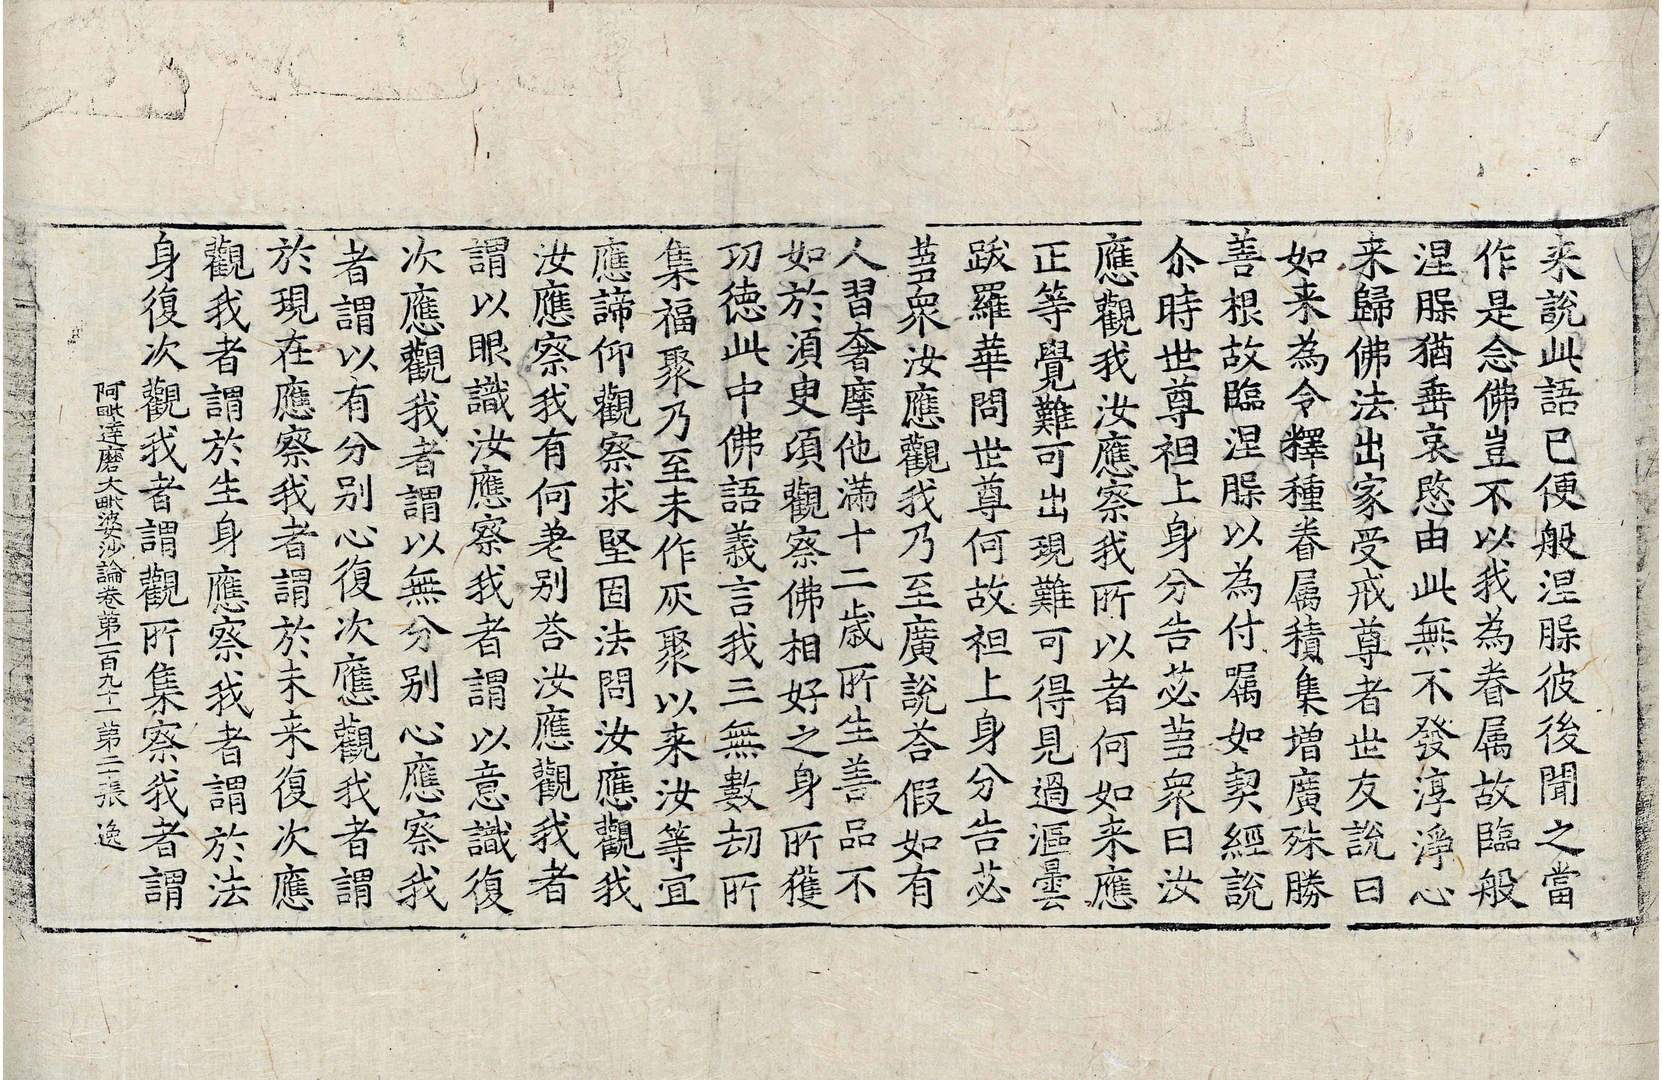 来說此語已便般涅腂彼後聞之當
作是念佛豈不以我為眷属故臨般
涅腂猶垂哀愍由此無不發淳淨心
来歸佛法出家受戒尊者世友說曰
如来為令釋種眷属積集增廣殊勝
善根故臨涅腂以為付嘱如契經說
尒時世尊袒上身分告苾蒭衆曰汝
應觀我汝應察我所以者何如来應
正等覺難可出現難可得見過漚曇
跋羅華問世尊何故袒上身分告苾
蒭衆汝應觀我乃至廣說荅假如有
人習奢摩他滿十二歲所生善品不
如於湏臾頃觀察佛相好之身所獲
功徳此中佛語義言我三無數劫所
集福聚乃至未作灰聚以来汝等宜
應諦仰觀察求堅固法問汝應觀我
汝應察我有何差别荅汝應觀我者
謂以眼識汝應察我者謂以意識復
次應觀我者謂以無分别心應察我
者謂以有分别心復次應觀我者謂
於現在應察我者謂於未来復次應
觀我者謂於生身應察我者謂於法
身復次觀我者謂觀所集察我者謂
阿毗達磨大毗婆沙論卷第一百九十一 第二十張 逸